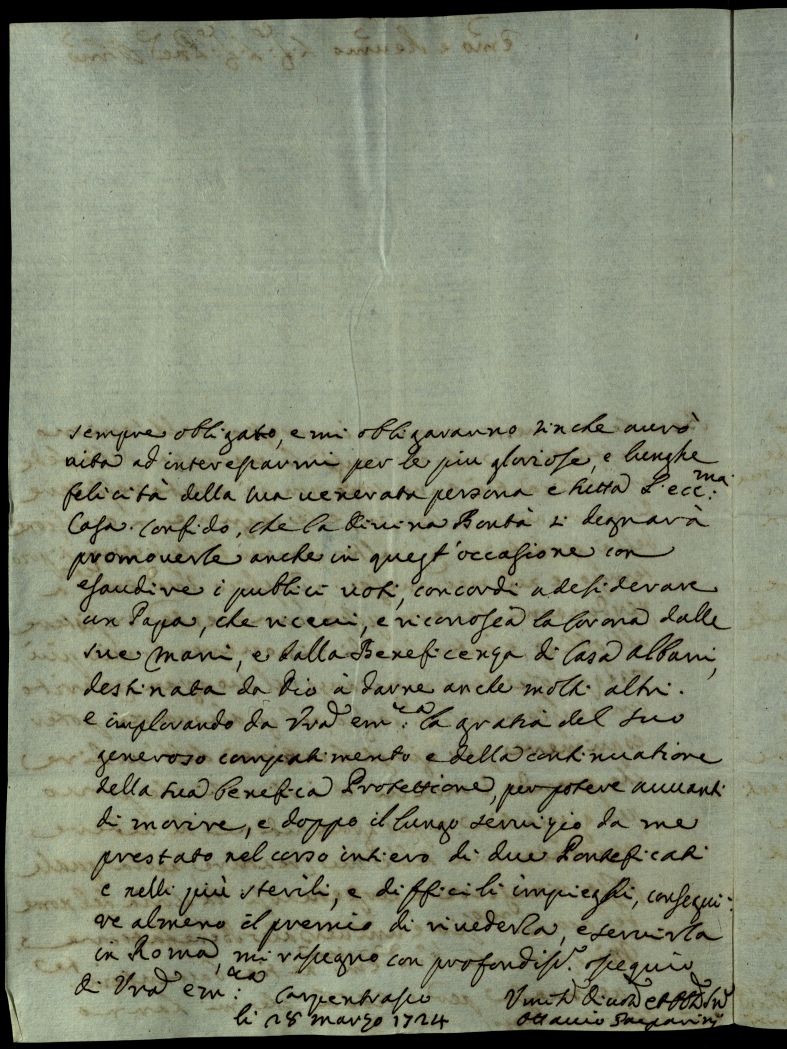 sempre obligato, e mi obligaranno sinche averò
vita ad interessarmi per le piu gloriose, e lunghe
felicità della sua venerata persona e tutta l'ecc.ma
Casa. Confido, che la Divina Bontà si degnarà
promoverle anche in quest'occasione con
esaudire i publici voti, concordi a desiderare
un Papa, che riceva, e riconosca la Corona dalle
sue mani, e dalla Beneficenza di Casa Albani,
destinata da Dio à darne anche molti altri.
e implorando da Vra em.za la gratia del suo
generoso compatimento e della continuatione
della sua benefica Protettione, per potere avvanti
di morire, e doppo il lungo servizio da me
prestato nel corso intiero di due Ponteficati
e nelli più sterili, e difficili impieghi, consegui:
re almeno il premio di rivederla, e servirla
in Roma, mi rassegno con profondis.o ossequio
di Vra em.za Carpentrasso
li 28 marzo 1724
Ottavio Gasparini